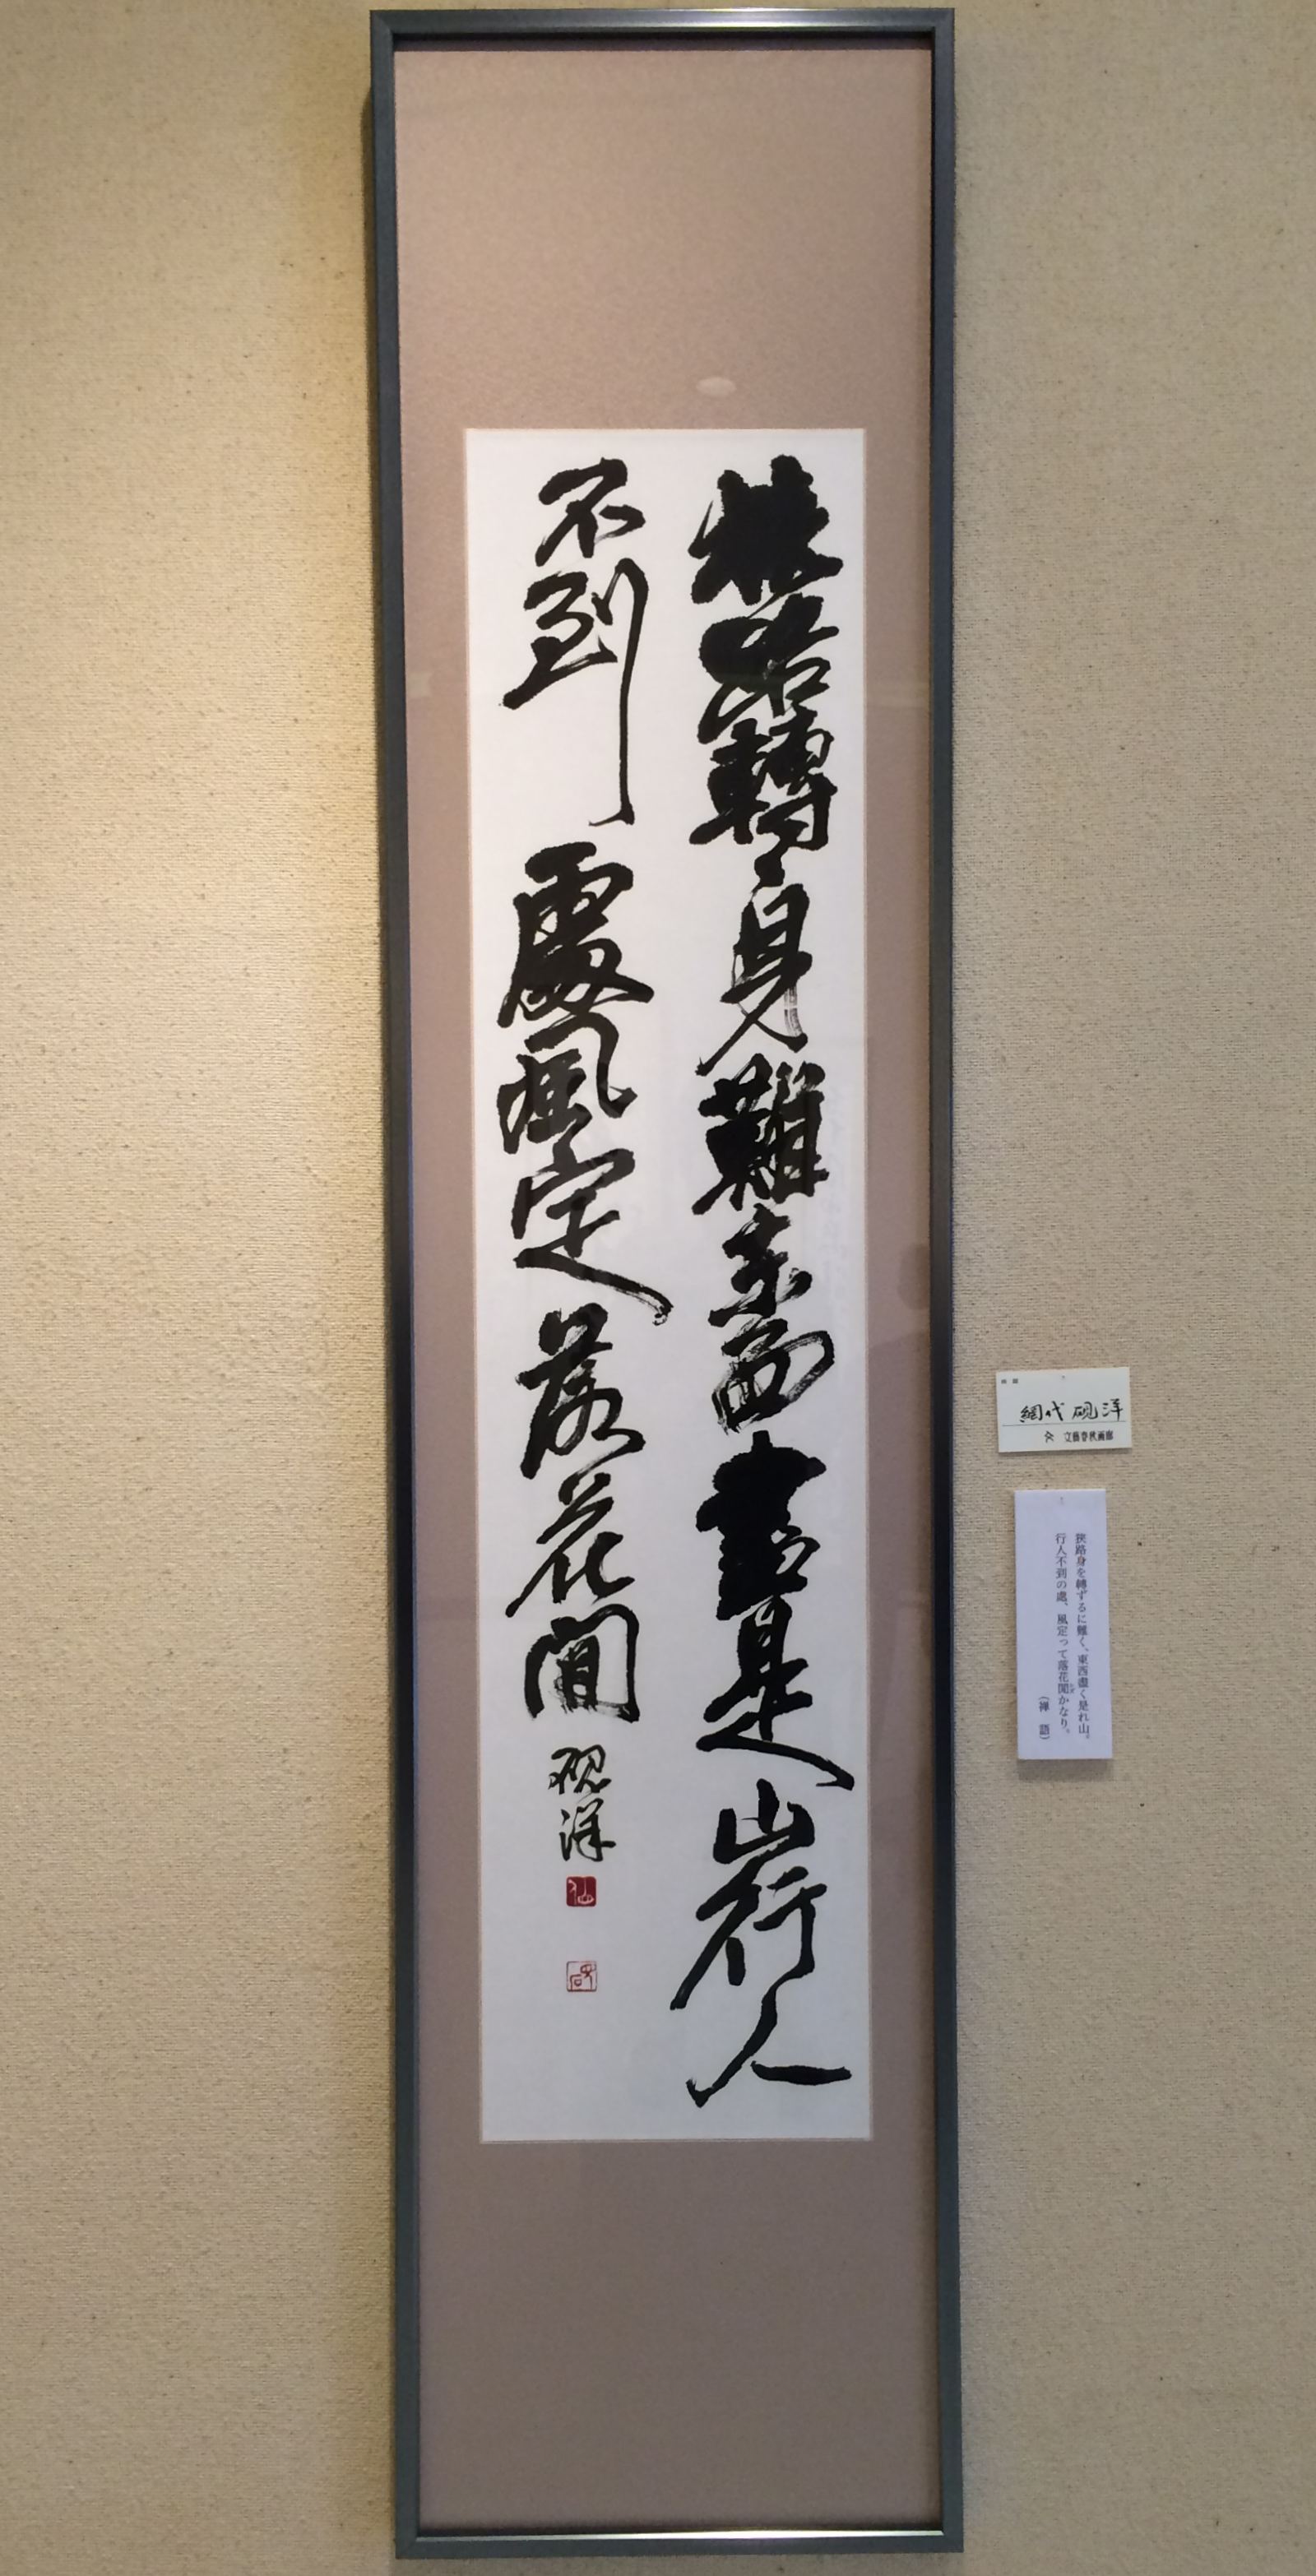 狹路轉身難東西盡是山行人
不到處風定落花閒
硯洋
仙
網代硯洋
文藝春秋画廊
狹路身を轉ずるに難く、東西盡く是れ山。
行人不到の處、風定って落花閒かなり。
（禅語）